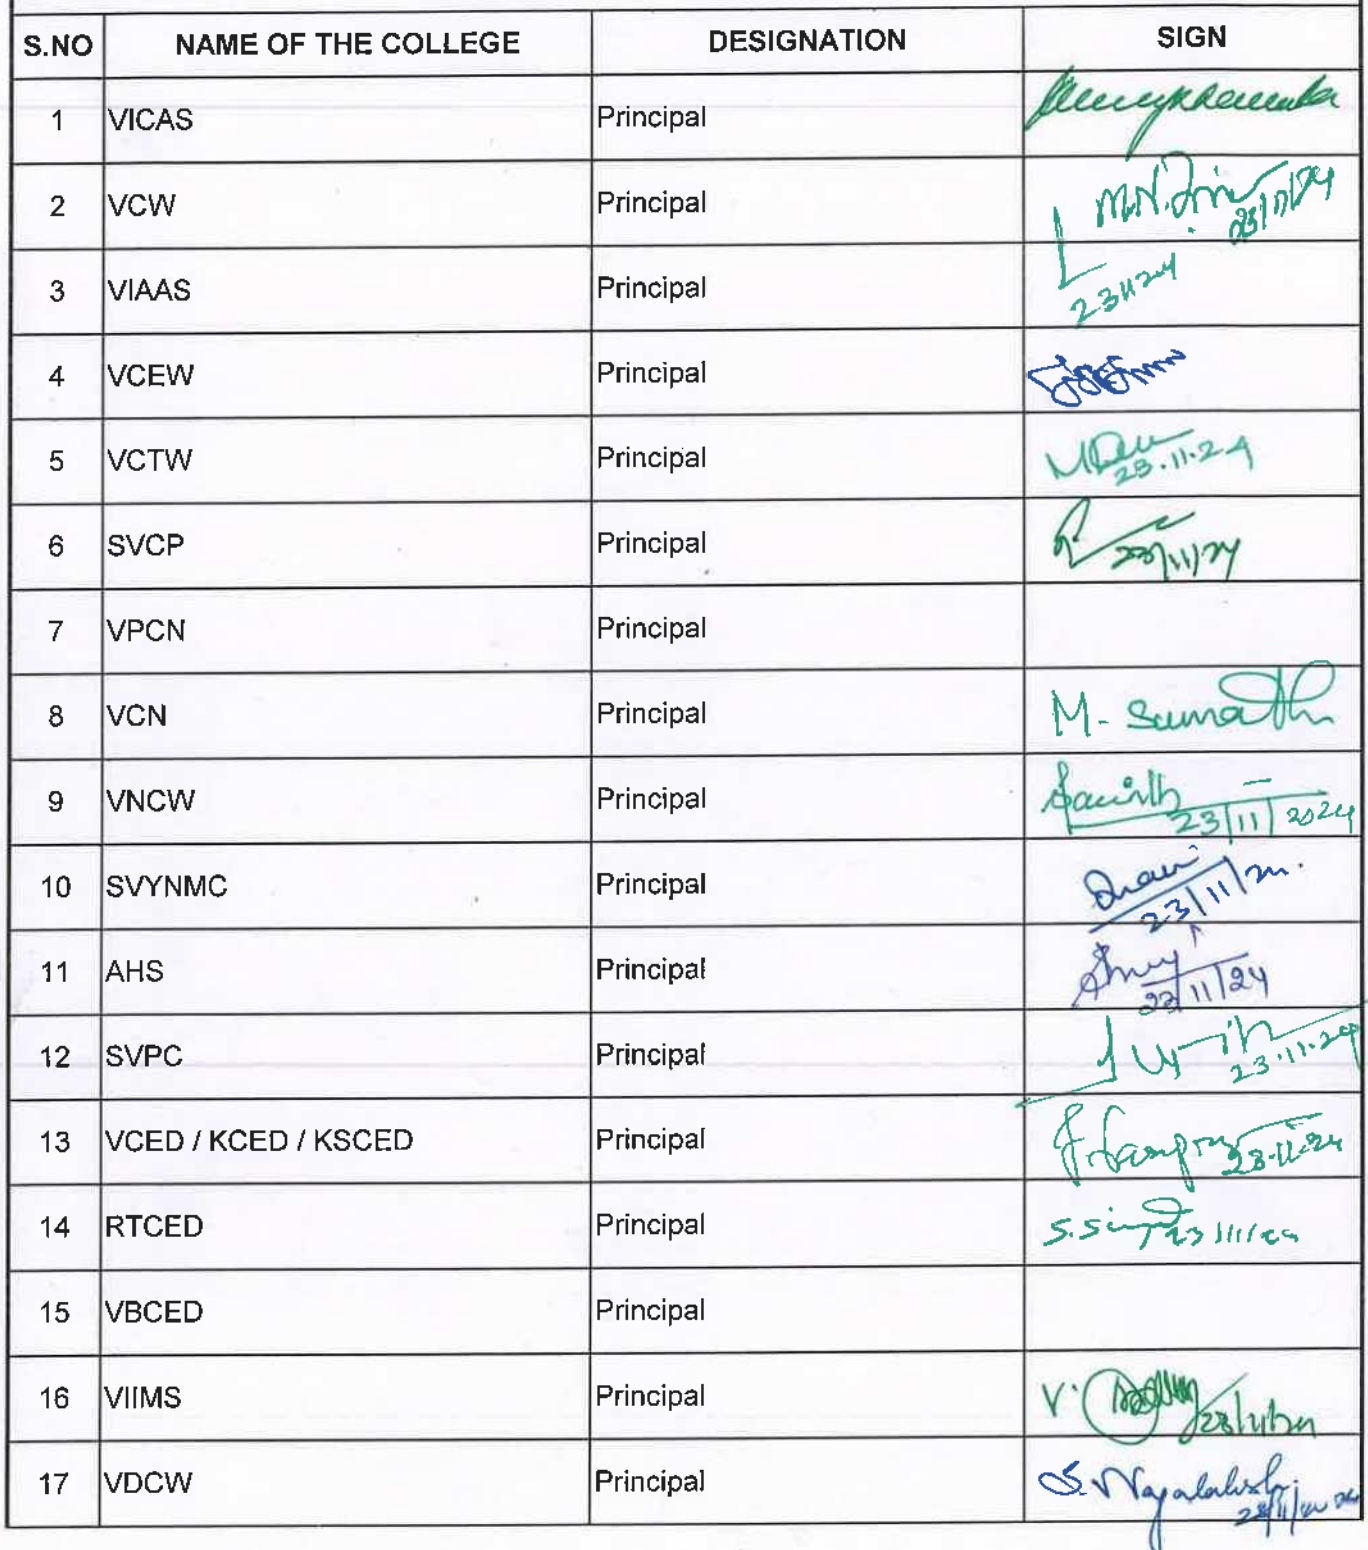 S.NO NAME OF THE COLLEGE DESIGNATION SIGN
1 VICAS Principal
2 VCW Principal 23/11/24
3 VIAAS Principal 231124
4 VCEW Principal
5 VCTW Principal 23.11.24
6 SVCP Principal 23/11/24
7 VPCN Principal
8 VCN Principal M. Sumathi
9 VNCW Principal 23/11/2024
10 SVYNMC Principal 23/11/24.
11 AHS Principal 23/11/24
12 SVPC Principal 23.11.24
13 VCED / KCED / KSCED Principal 23.11.24
14 RTCED Principal 23/11/24
15 VBCED Principal
16 VIIMS Principal V. 23/11/24
17 VDCW Principal